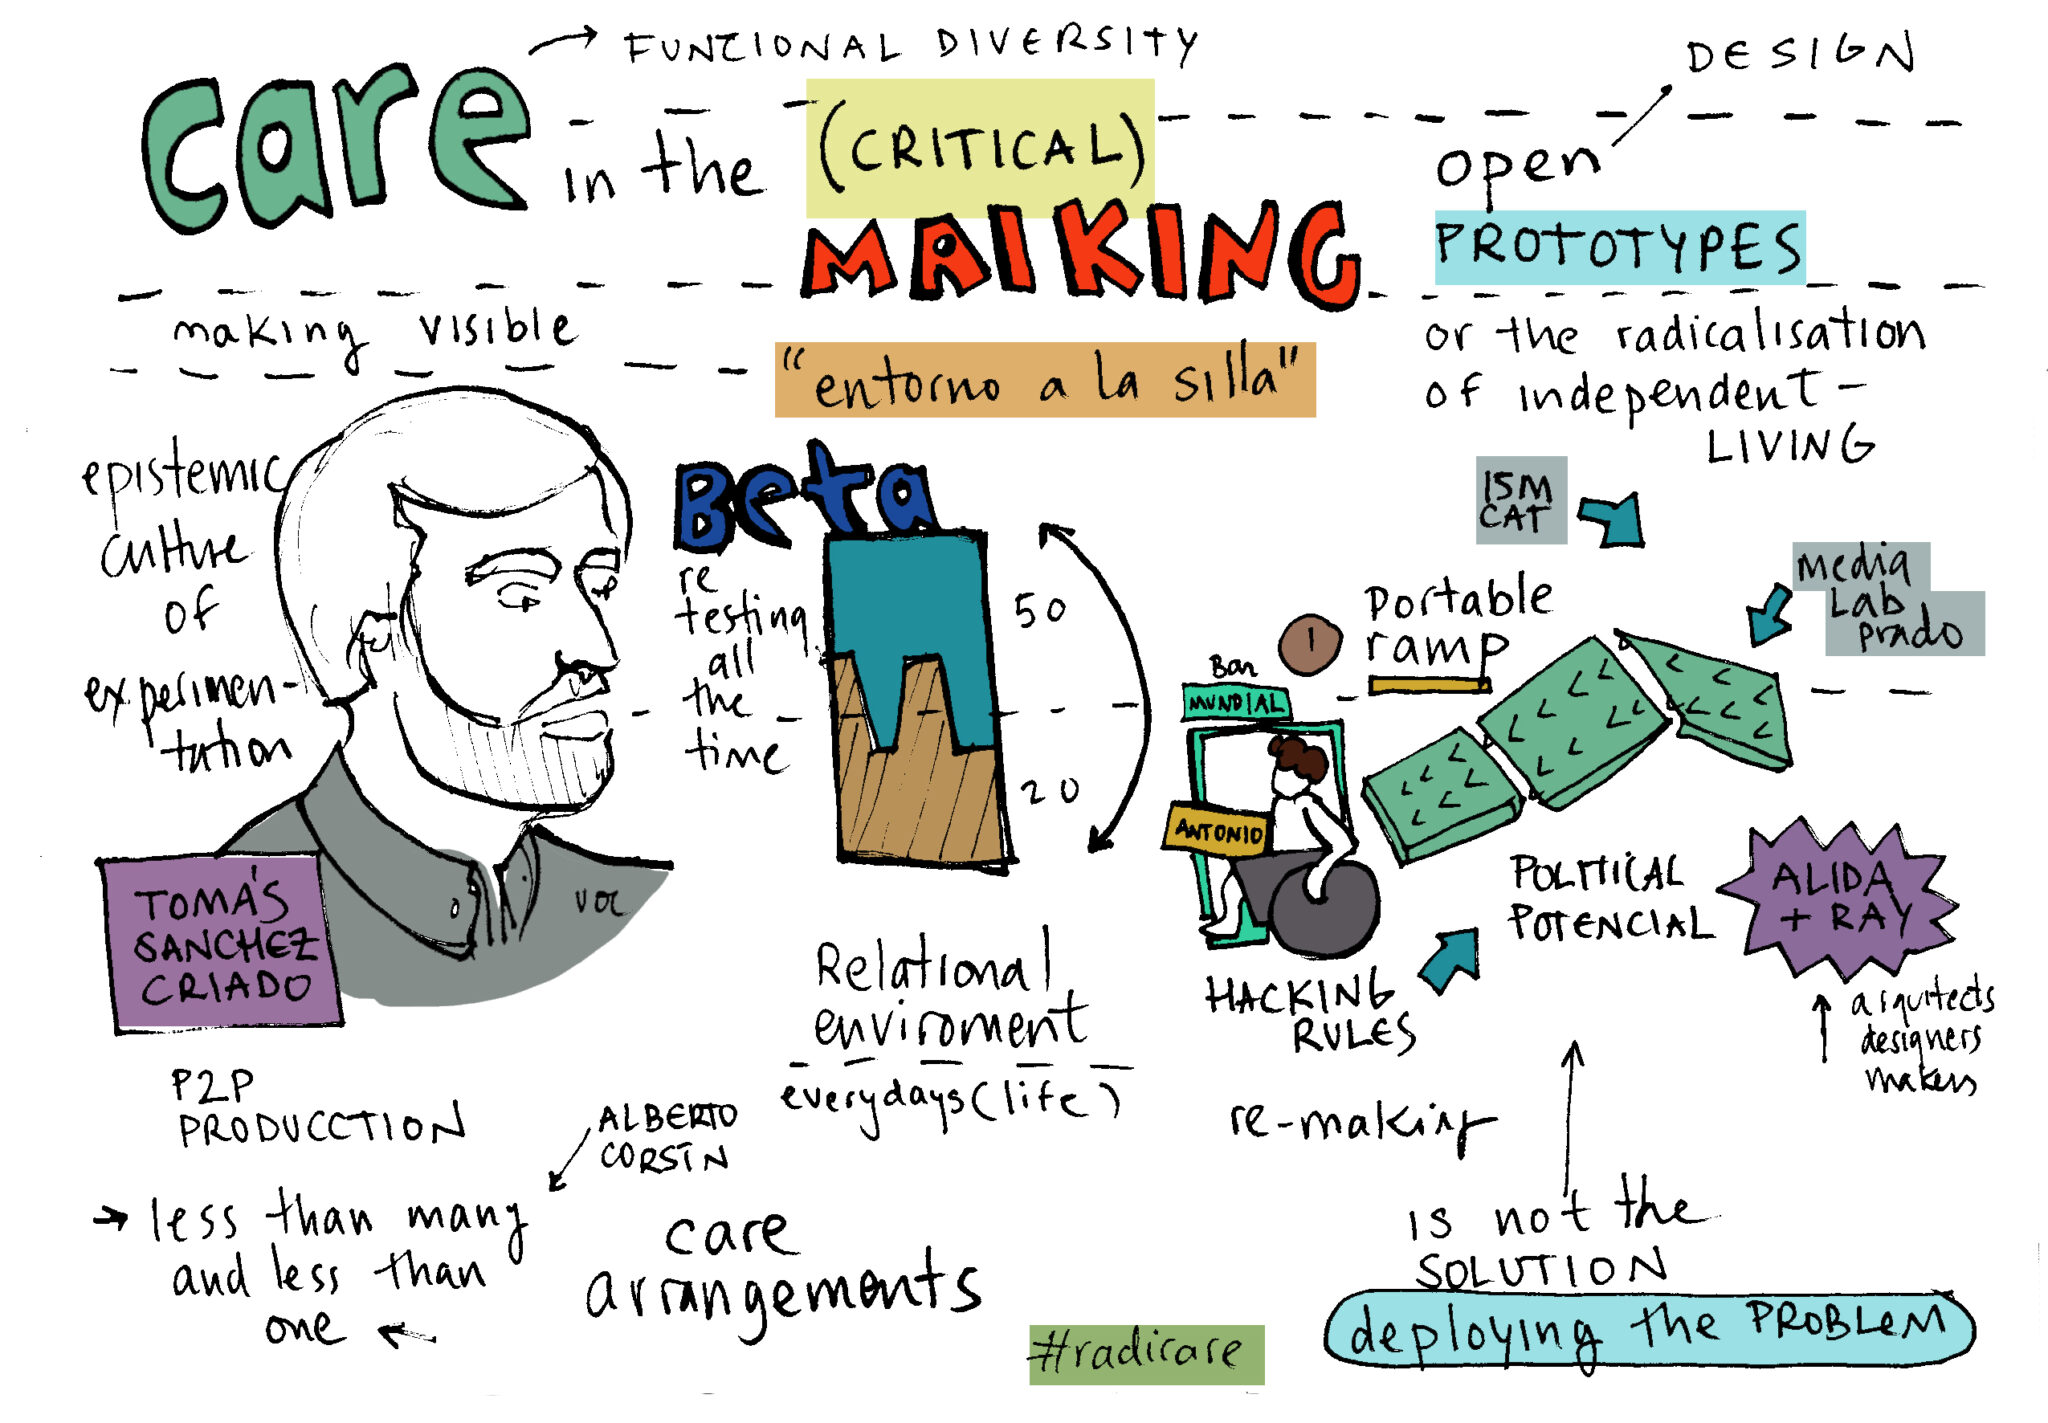 FUNZIONAL DIVERSITY
DESIGN
care
in the
(CRITICAL)
MAIKING
open
PROTOTYPES
making visible
"entorno a la silla"
or the radicalisation
of independent-
LIVING
epistemic
culture
of
experimen-
tation
Beta
re
testing
all
the
time
50
20
15M
CAT
Media
Lab
prado
1
portable
ramp
Bar
MUNDIAL
ANTONIO
POLITICAL
POTENCIAL
ALIDA
+ RAY
HACKING
RULES
arquitects
designers
makers
TOMÁS
SANCHEZ
CRIADO
Relational
enviroment
everydays (life)
P2P
PRODUCCTION
ALBERTO
CORSÍN
less than many
and less than
one
care
arrangements
re-making
is not the
SOLUTION
deploying the PROBLEM
#radicare